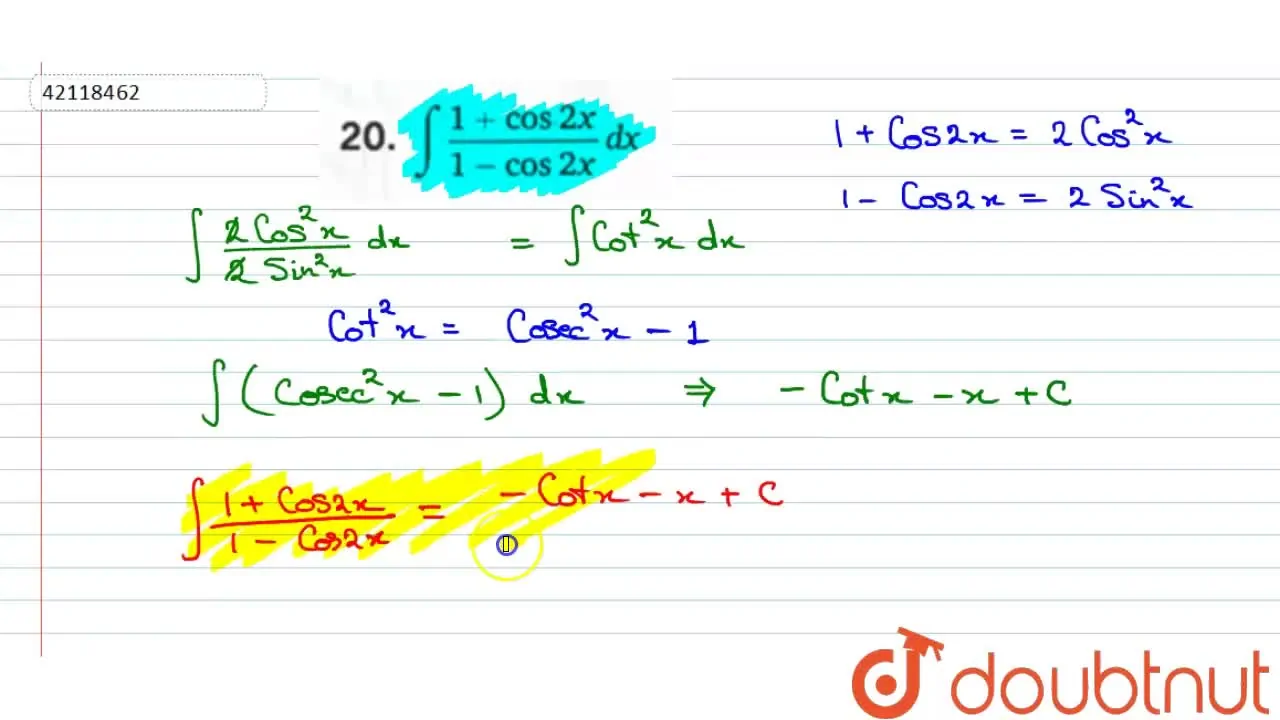 42118462
20. ∫ (1 + cos 2x)/(1 − cos 2x) dx
1 + Cos2x = 2Cos²x
1 − Cos2x = 2 Sin²x
∫ (2Cos²x)/(2 Sin²x) dx = ∫ Cot²x dx
Cot²x = Cosec²x − 1
∫ (Cosec²x − 1) dx ⇒ − Cotx − x + C
∫ (1 + Cos2x)/(1 − Cos2x) = − Cotx − x + C
doubtnut